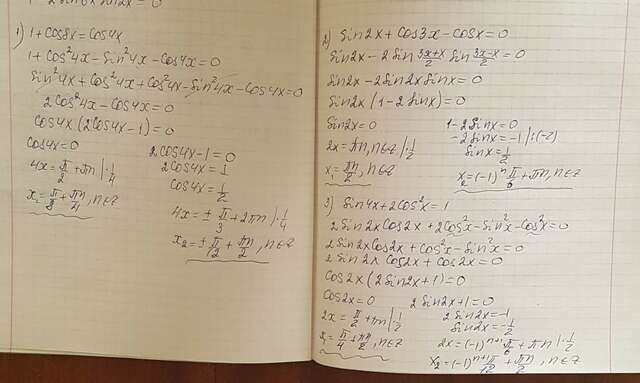 1) 1+cos8x=cos4x
1+cos²4x-sin²4x-cos4x=0
sin²4x+cos²4x+cos²4x-sin²4x-cos4x=0
2cos²4x-cos4x=0
cos4x(2cos4x-1)=0
cos4x=0    2cos4x-1=0
4x=π/2+πn |·1/4    2cos4x=1
x₁=π/8+πn/4, n∈Z    cos4x=1/2
4x=±π/3+2πn |·1/4
x₂=±π/12+πn/2, n∈Z
2) sin2x+cos3x-cosx=0
sin2x-2sin (3x+x)/2 sin (3x-x)/2=0
sin2x-2sin2x sinx=0
sin2x(1-2sinx)=0
sin2x=0    1-2sinx=0
2x=πn, n∈Z |·1/2    -2sinx=-1 |:(-2)
x₁=πn/2, n∈Z    sinx=1/2
x₂=(-1)ⁿ π/6+πn, n∈Z
3) sin4x+2cos²x=1
2sin2xcos2x+2cos²x-sin²x-cos²x=0
2sin2xcos2x+cos²x-sin²x=0
2sin2x cos2x+cos2x=0
cos2x(2sin2x+1)=0
cos2x=0    2sin2x+1=0
2x=π/2+πn |·1/2    2sin2x=-1
x₁=π/4+πn/2, n∈Z    sin2x=-1/2
2x=(-1)ⁿ⁺¹ π/6+πn |·1/2
x₂=(-1)ⁿ⁺¹ π/12+πn/2, n∈Z